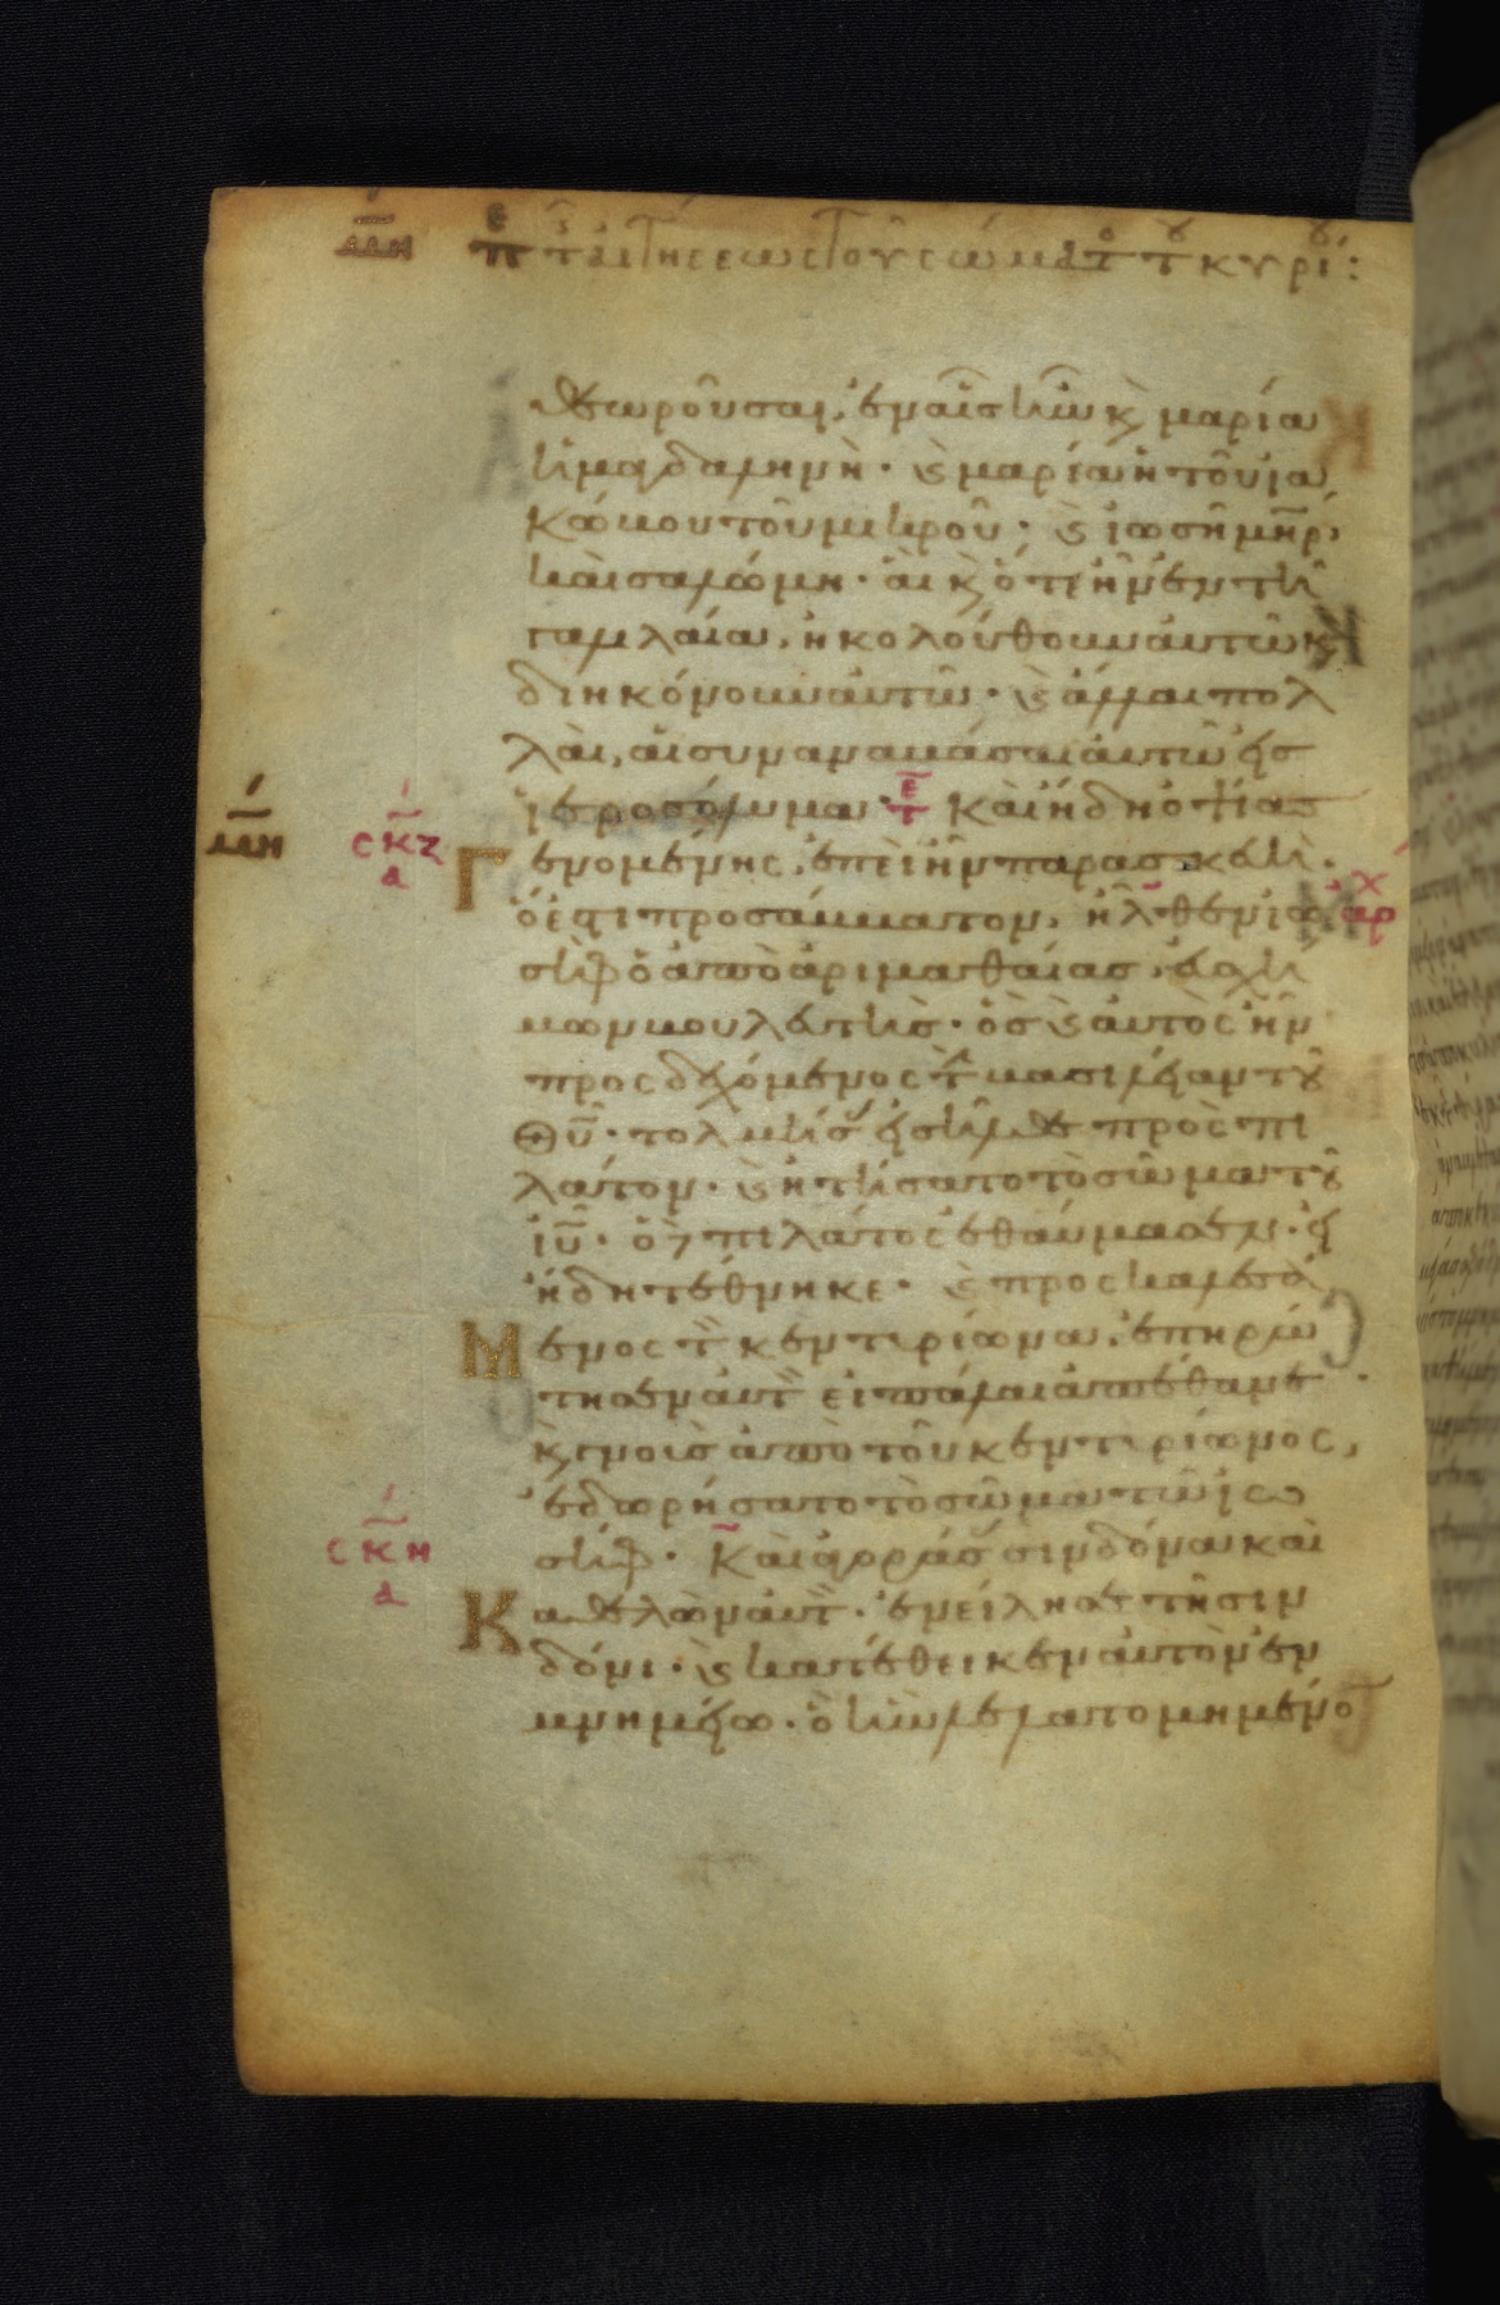 μη πε τ αιτησεως του σώματο του κυρί :
θεωροῦσαι, ἐν αἷς ἦν κ μαρία
ἡ μαγδαληνὴ · κ μαρία ἡ τοῦ ια
κώβου τοῦ μικροῦ · κ ιωσῆ μηρ,
καὶ σαλώμη · αἳ κ ὅτε ἦν ἐν τῆ
γαλιλαία, ἠκολούθουν αὐτῶ κ
διηκόνουν αὐτῶ · κ ἄλλαι πολ
λαὶ, αἱ συναναβᾶσαι αὐτῶ εἰς
ἱεροσόλυμα · τε Καὶ ἤδη ὀψίας
μη σκζ α
Γενομένης, ἐπεὶ ἦν παρασκευὴ ·
ὅ ἐστι προσάββατον, ἦλθεν ιω αρχ
σὴφ ὁ ἀπὸ ἀριμαθαίας, εὐσχή
μων βουλευτὴς · ὃς κ αὐτὸς ἦν
προσδεχόμενος τ βασιλείαν του
θυ · τολμήσας εἰσῆλθε πρὸς πι
λάτον · κ ητήσατο τὸ σῶμα του
ιυ · ὁ δὲ πιλάτος ἐθαύμασεν · εἰ
ἤδη τέθνηκε · κ προσκαλεσά
Μενος τ κεντυρίωνα, ἐπηρώ
τησεν αὐτ εἰ πάλαι ἀπέθανε
κ γνοὺς ἀπὸ τοῦ κεντυρίωνος,
ἐδωρήσατο τὸ σῶμα τῶ ιω
σκη α
σήφ · Καὶ ἀγοράσας σινδόνα καὶ
Καθελὼν αὐτ · ἐνείλησε τῆ σιν
δόνι · κ κατέθεικεν αὐτὸν ἐν
μνημείω · ὃ ἦν λελατομημένο